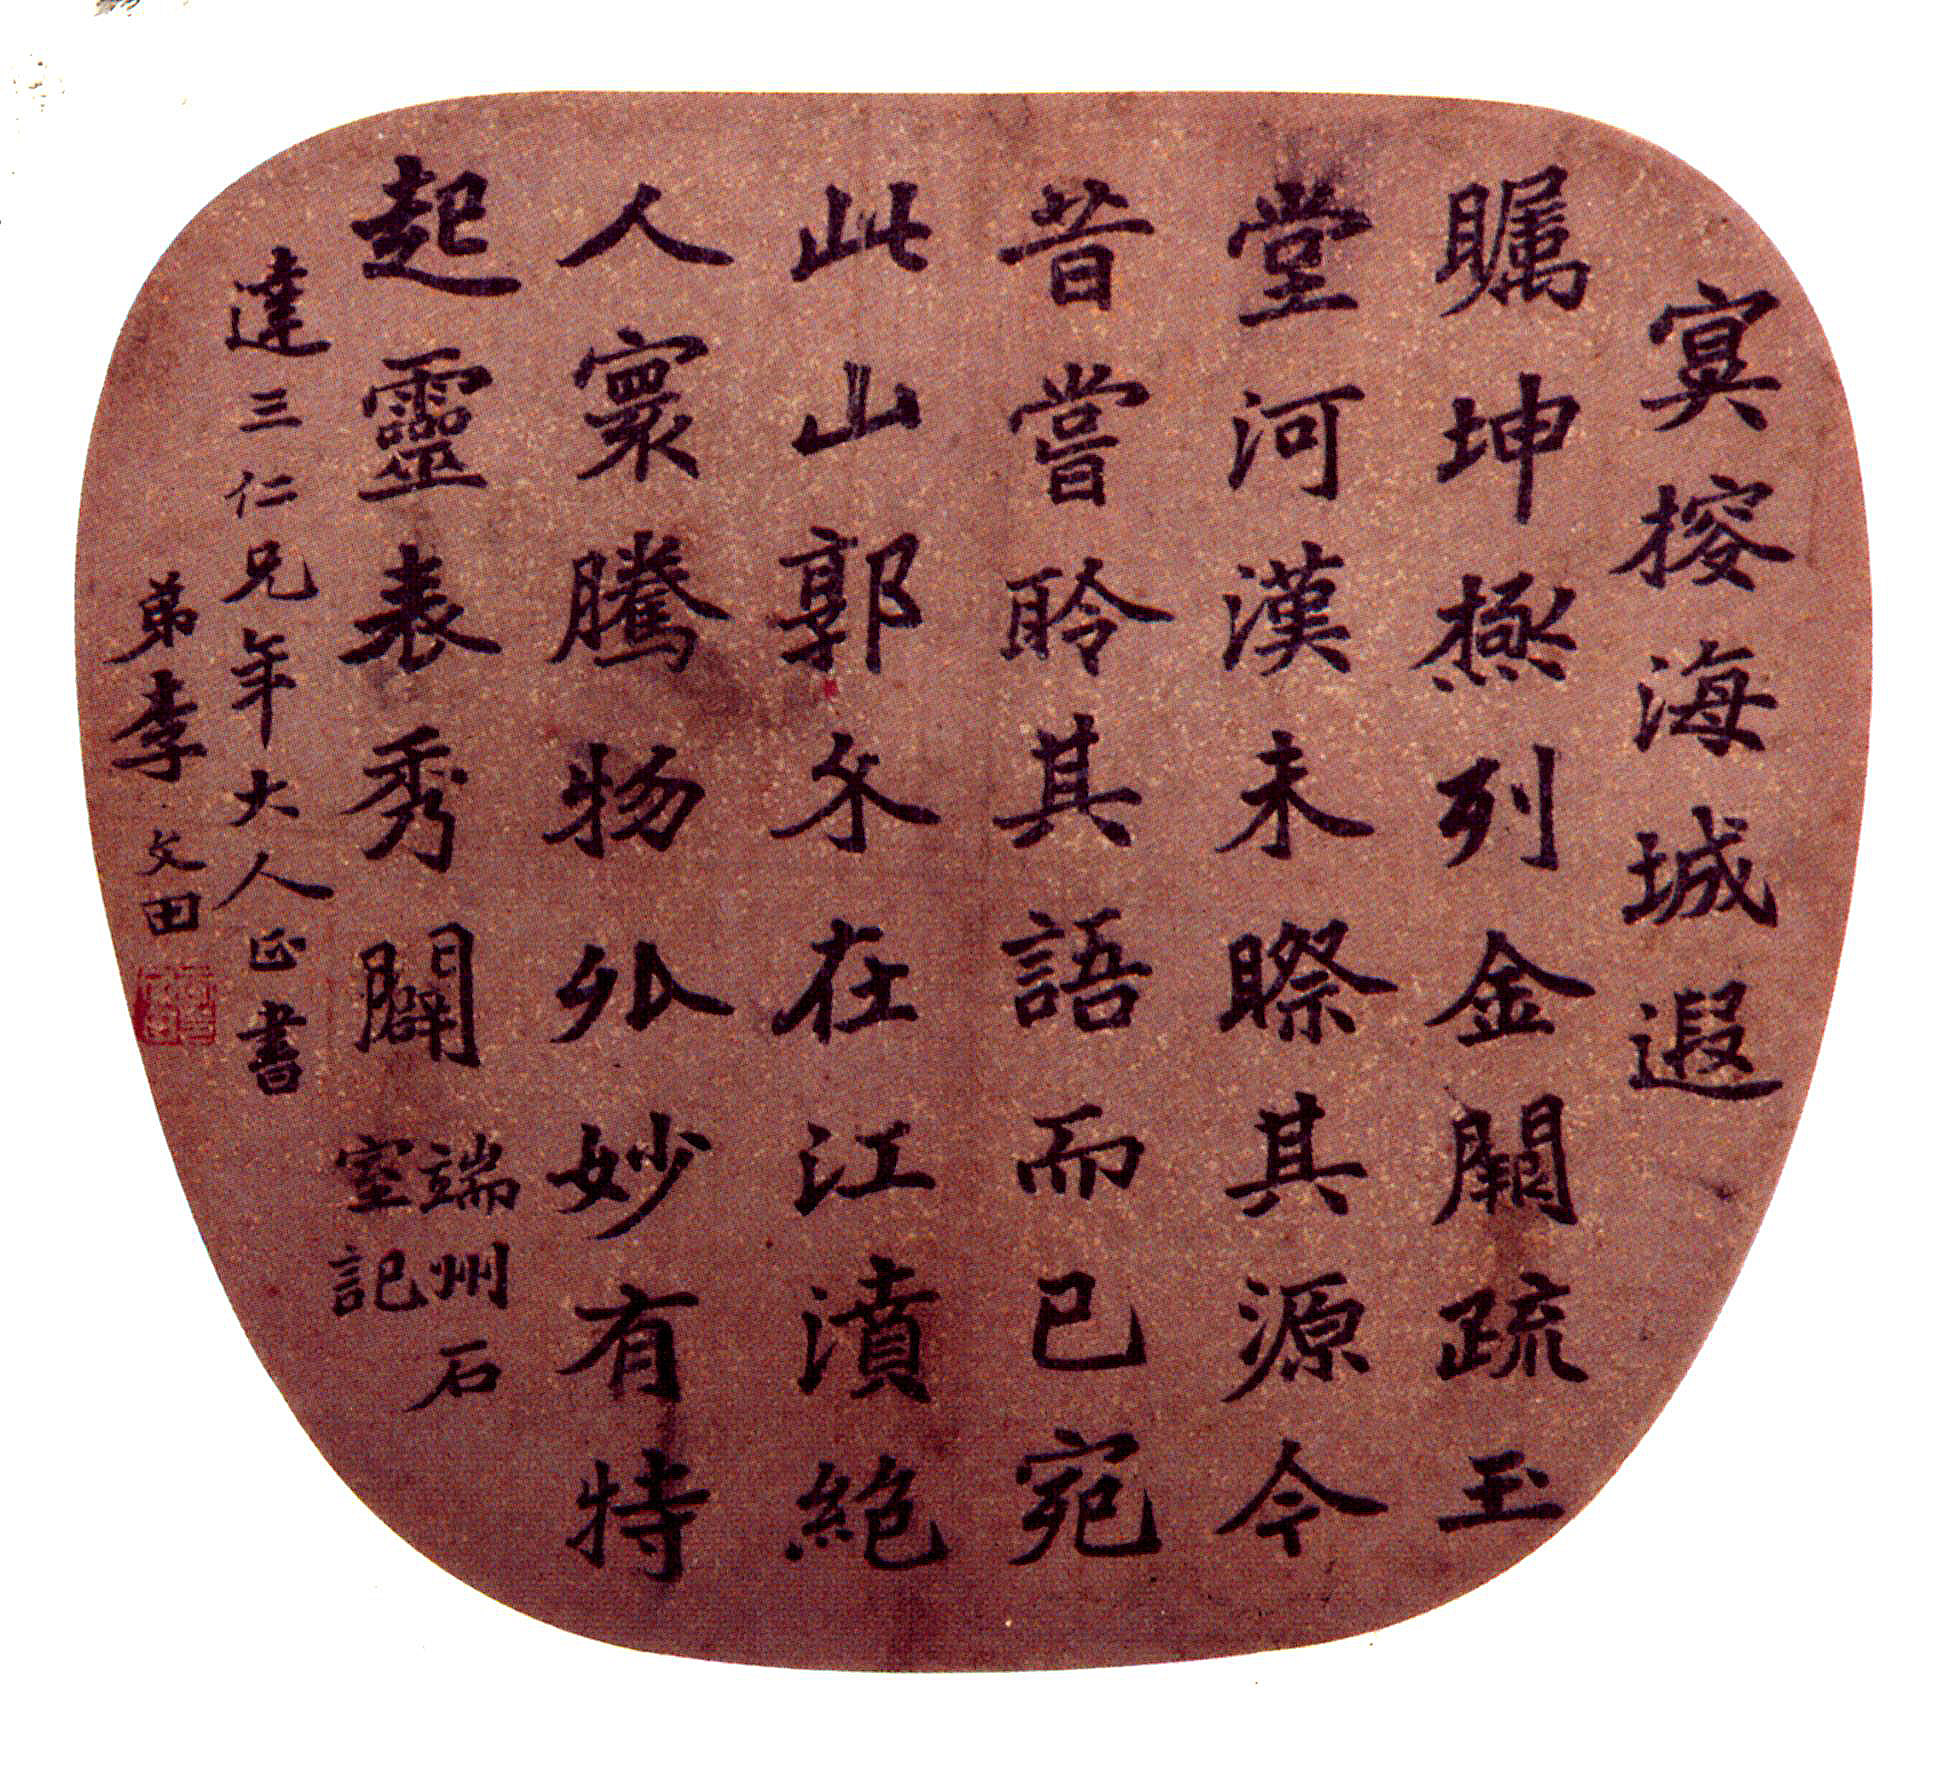 冥搜海城遐
矚坤極列金闕疏玉
堂河漢未其源今
昔嘗聆其語而已宛
此山郭尒在江濆絕
人寰騰物外妙有特
起靈表秀闢
端州石
室記
達三仁兄年大人正書
弟李文田